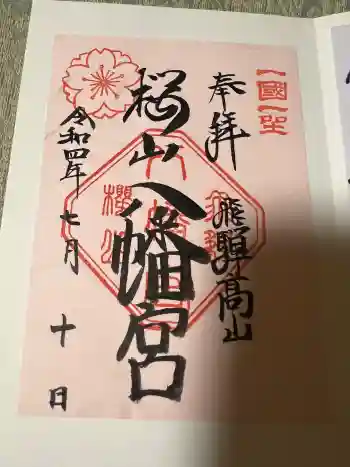 一國一社
奉拝
飛騨高山
桜山八幡宮
令和四年七月十日